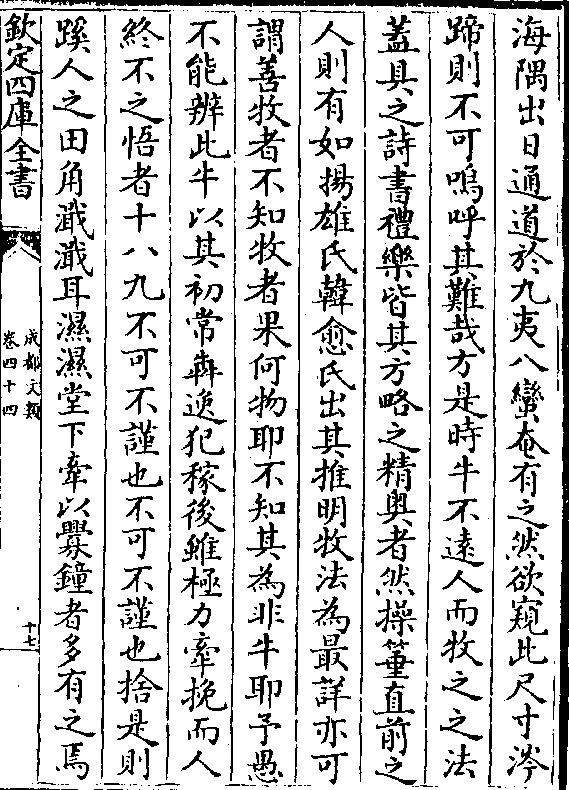 海隅出日通道於九夷八蠻奄有之然欲窺此尺寸涔
蹄則不可嗚呼其難哉方是時牛不遠人而牧之之法
蓋具之詩書禮樂皆其方略之精奥者然操箠直前之
人則有如揚雄氏韓愈氏出其推明牧法為最詳亦可
謂善牧者不知牧者果何物耶不知其為非牛耶予愚
不能辨此牛以其初常犇逸犯稼後雖極力牽挽而人
終不之悟者十八九不可不謹也不可不謹也捨是則
蹊人之田角濈濈耳濕濕堂下牽以釁鐘者多有之焉
欽定四庫全書
成都文類
卷四十四
十七